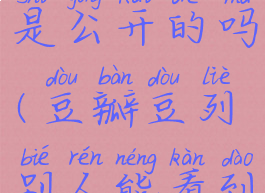 是公开的吗
dòu bàn dòu liè
(豆瓣豆列
bié rén néng kàn dào
别人能看到